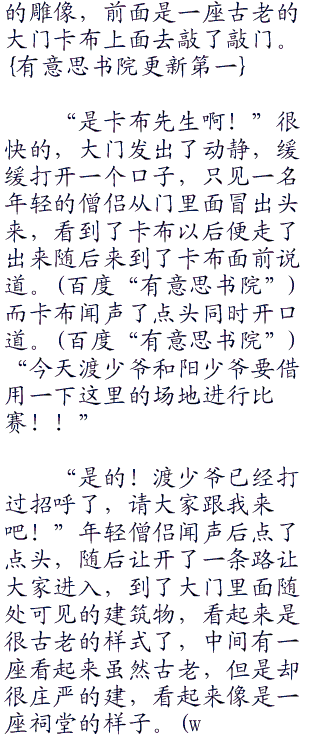 的雕像，前面是一座古老的
大门卡布上面去敲了敲门。
{有意思书院更新第一}
“是卡布先生啊！”很
快的，大门发出了动静，缓
缓打开一个口子，只见一名
年轻的僧侣从门里面冒出头
来，看到了卡布以后便走了
出来随后来到了卡布面前说
道。(百度“有意思书院”)
而卡布闻声了点头同时开口
道。(百度“有意思书院”)
“今天渡少爷和阳少爷要借
用一下这里的场地进行比
赛！！”
“是的！渡少爷已经打
过招呼了，请大家跟我来
吧！”年轻僧侣闻声后点了
点头，随后让开了一条路让
大家进入，到了大门里面随
处可见的建筑物，看起来是
很古老的样式了，中间有一
座看起来虽然古老，但是却
很庄严的建，看起来像是一
座祠堂的样子。(w